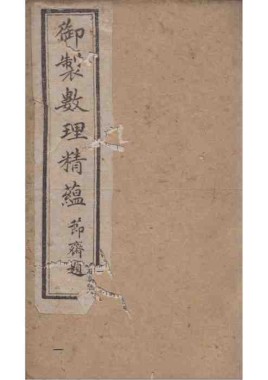 御製數理精蘊
節齋題
一